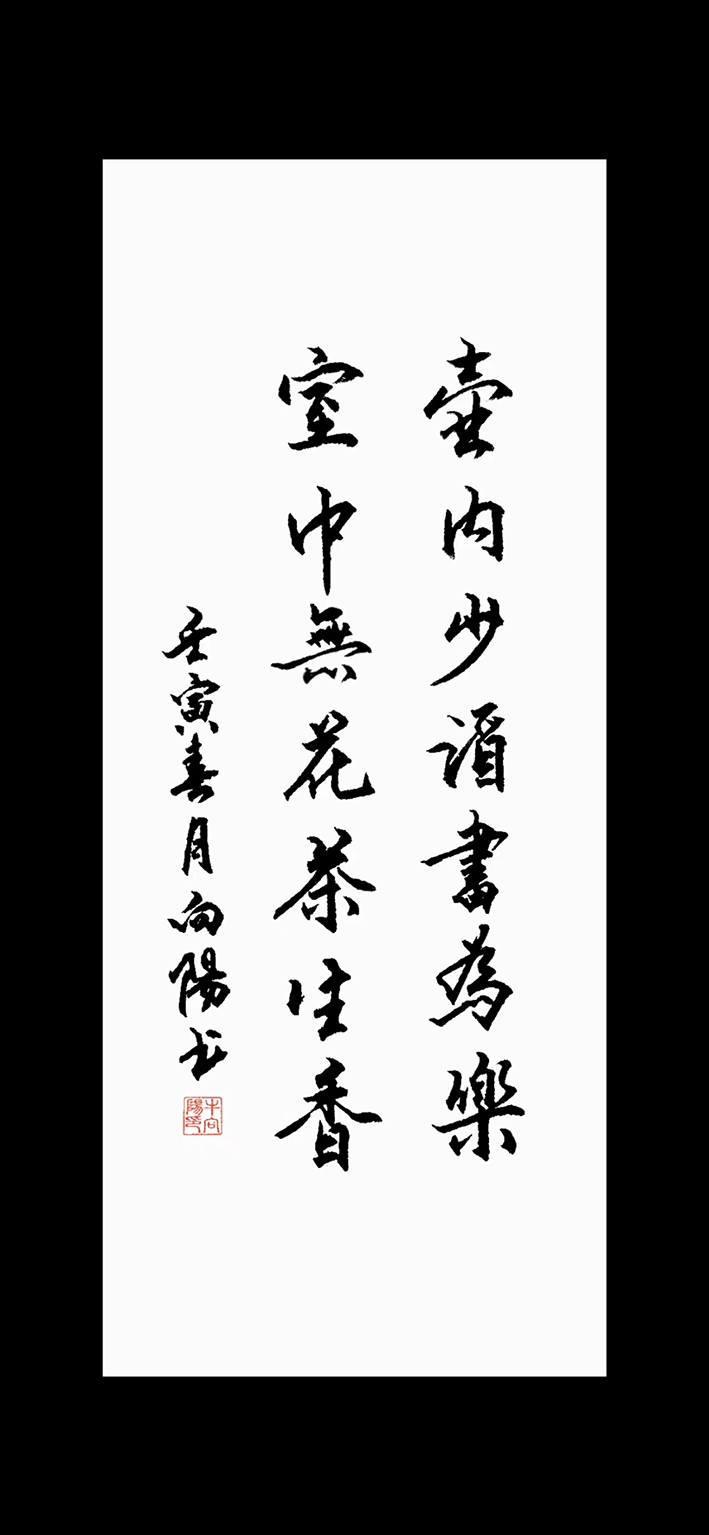 壺内少酒書為樂
室中無花茶生香
壬寅春月向陽书
牛向陽印